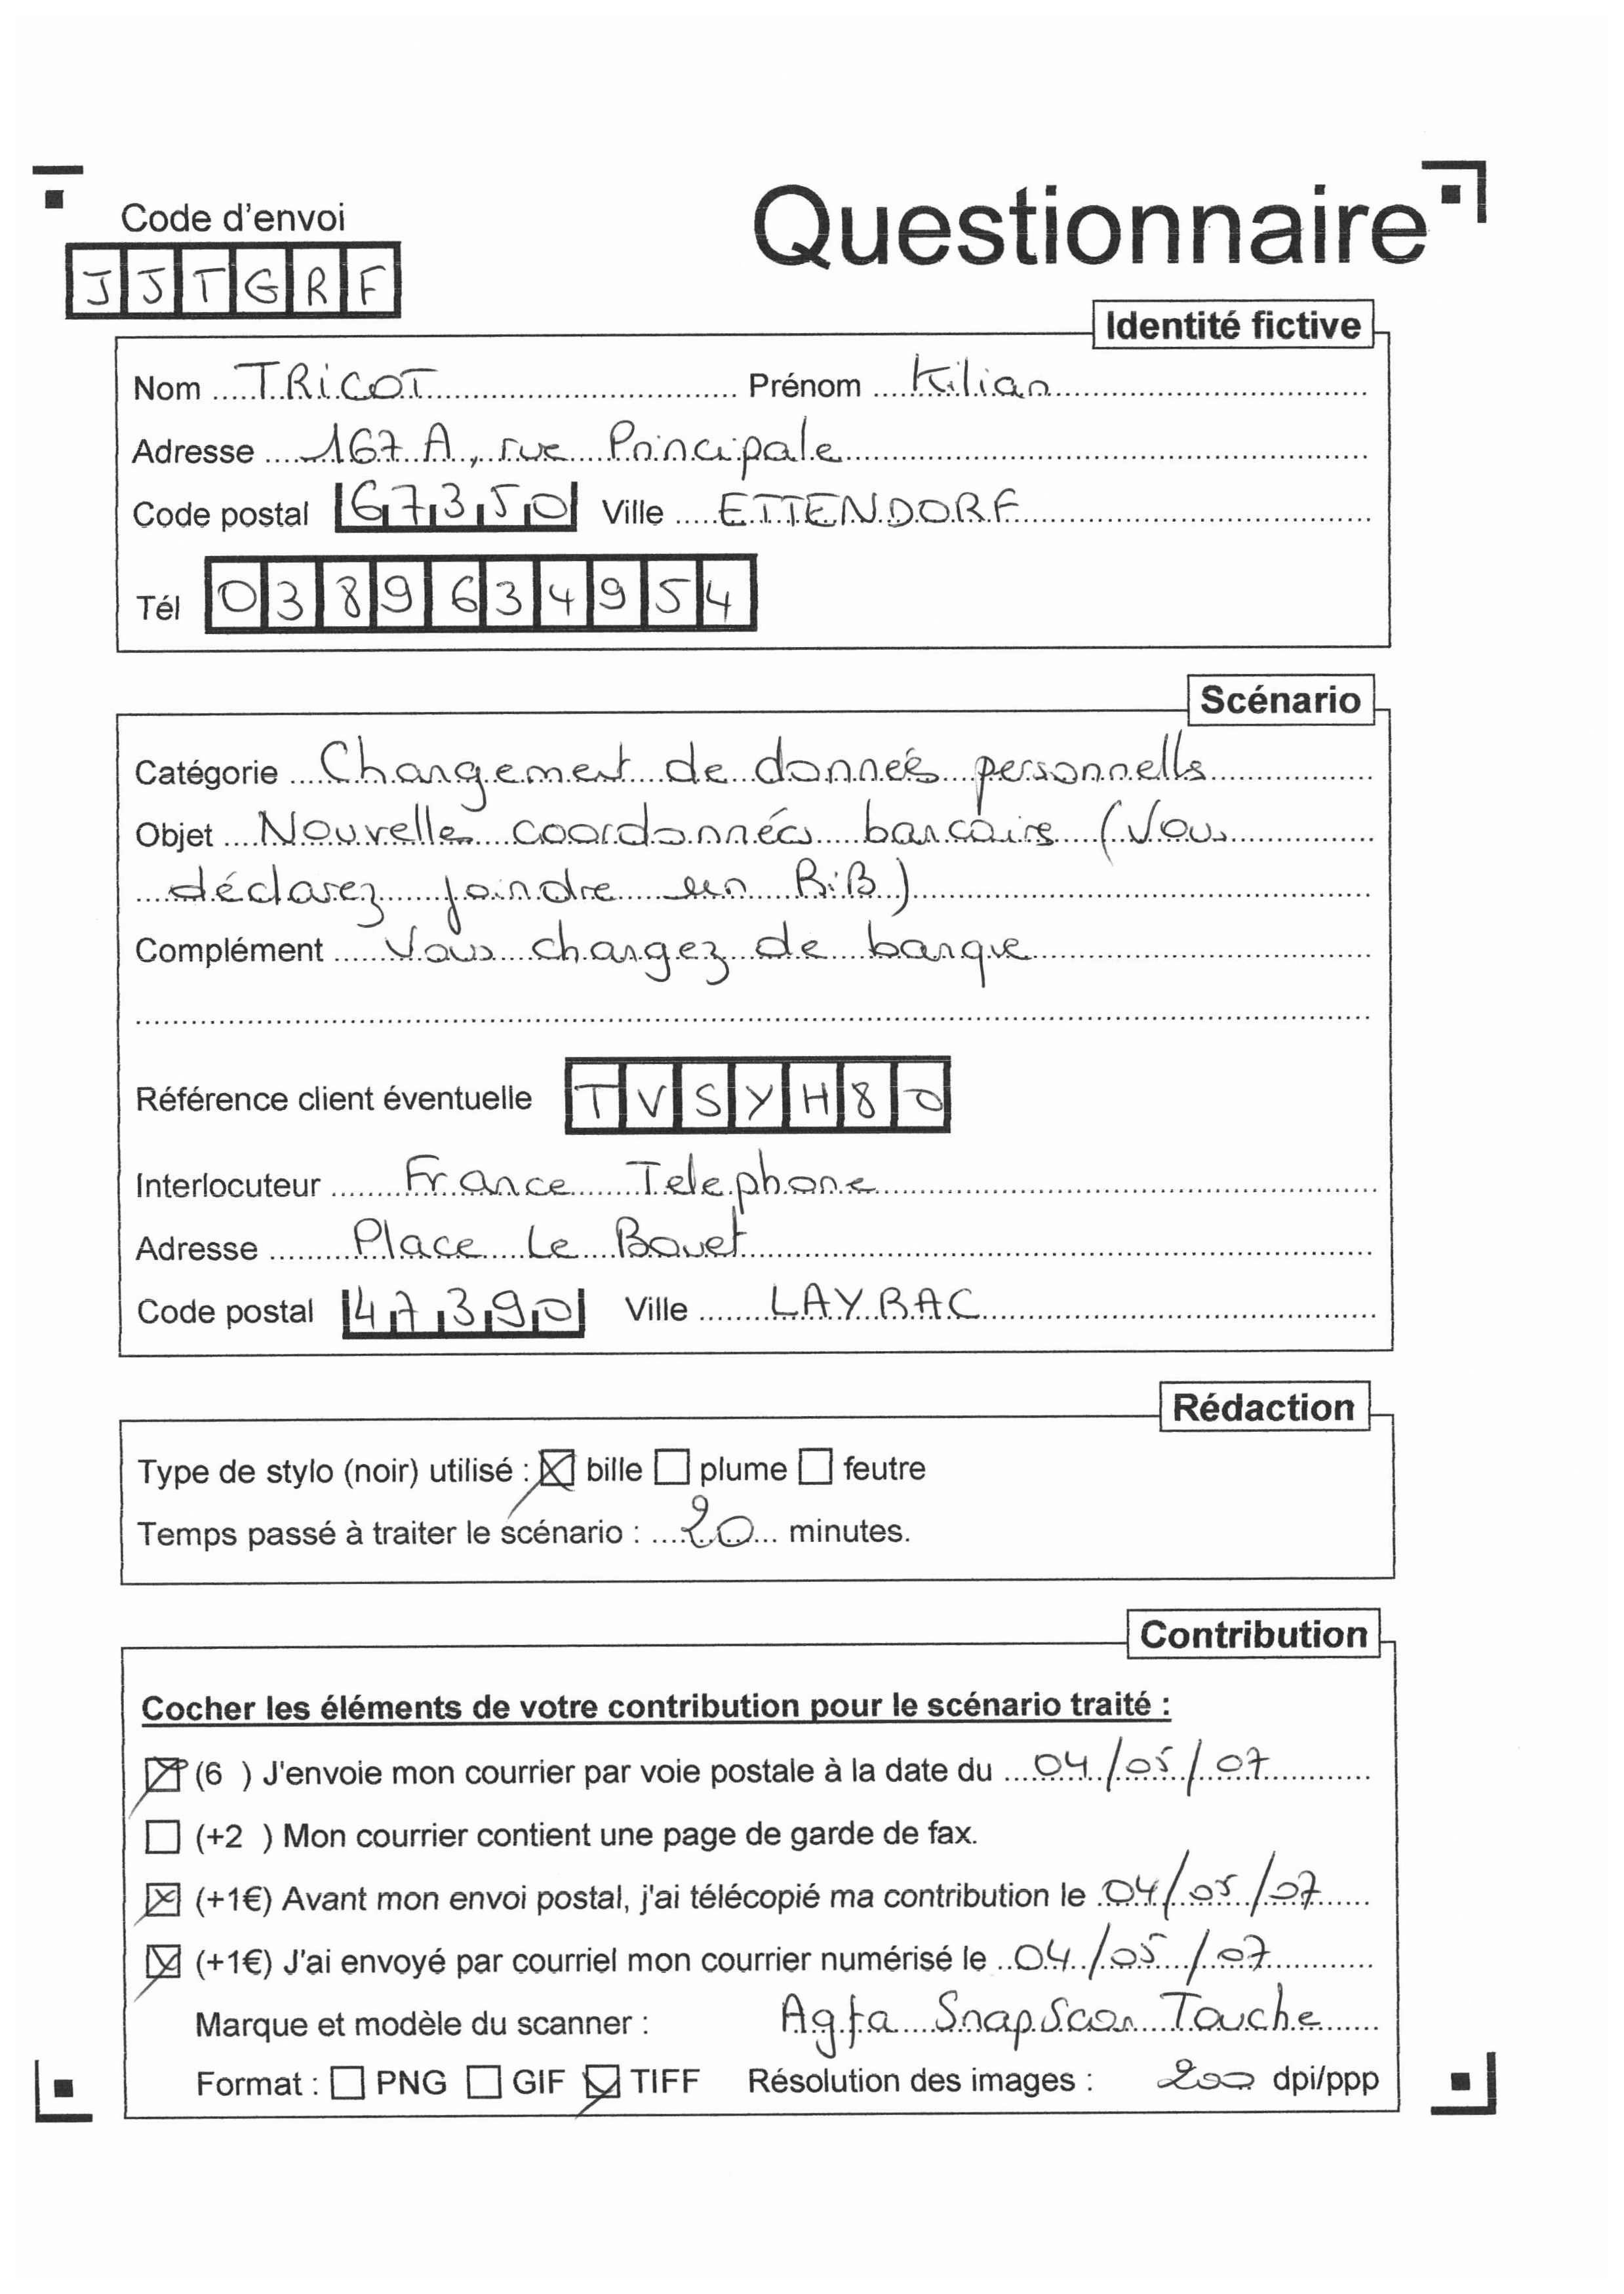 Questionnaire
Code d'envoi
JJTGRF
Identité fictive
Nom TRiCOT Prénom Kilian
Adresse 167 A, rue Principale
Code postal 67350 Ville ETTENDORF
Tél 0389634954
Scénario
Catégorie Changement de données personnelles
Objet Nouvelles coordonnées bancaires (Vous
déclarez joindre un RiB)
Complément Vous changez de banque
Référence client éventuelle TVSYH80
Interlocuteur France Telephone
Adresse Place Le Bouet
Code postal 47390 Ville LAYRAC
Rédaction
Type de stylo (noir) utilisé : ☒ bille ☐ plume ☐ feutre
Temps passé à traiter le scénario : 20 minutes.
Contribution
Cocher les éléments de votre contribution pour le scénario traité :
☒ (6 ) J'envoie mon courrier par voie postale à la date du 04/05/07
☐ (+2 ) Mon courrier contient une page de garde de fax.
☒ (+1€) Avant mon envoi postal, j'ai télécopié ma contribution le 04/05/07
☒ (+1€) J'ai envoyé par courriel mon courrier numérisé le 04/05/07
Marque et modèle du scanner : Agfa SnapScan Touche
Format : ☐ PNG ☐ GIF ☒ TIFF Résolution des images : 200 dpi/ppp